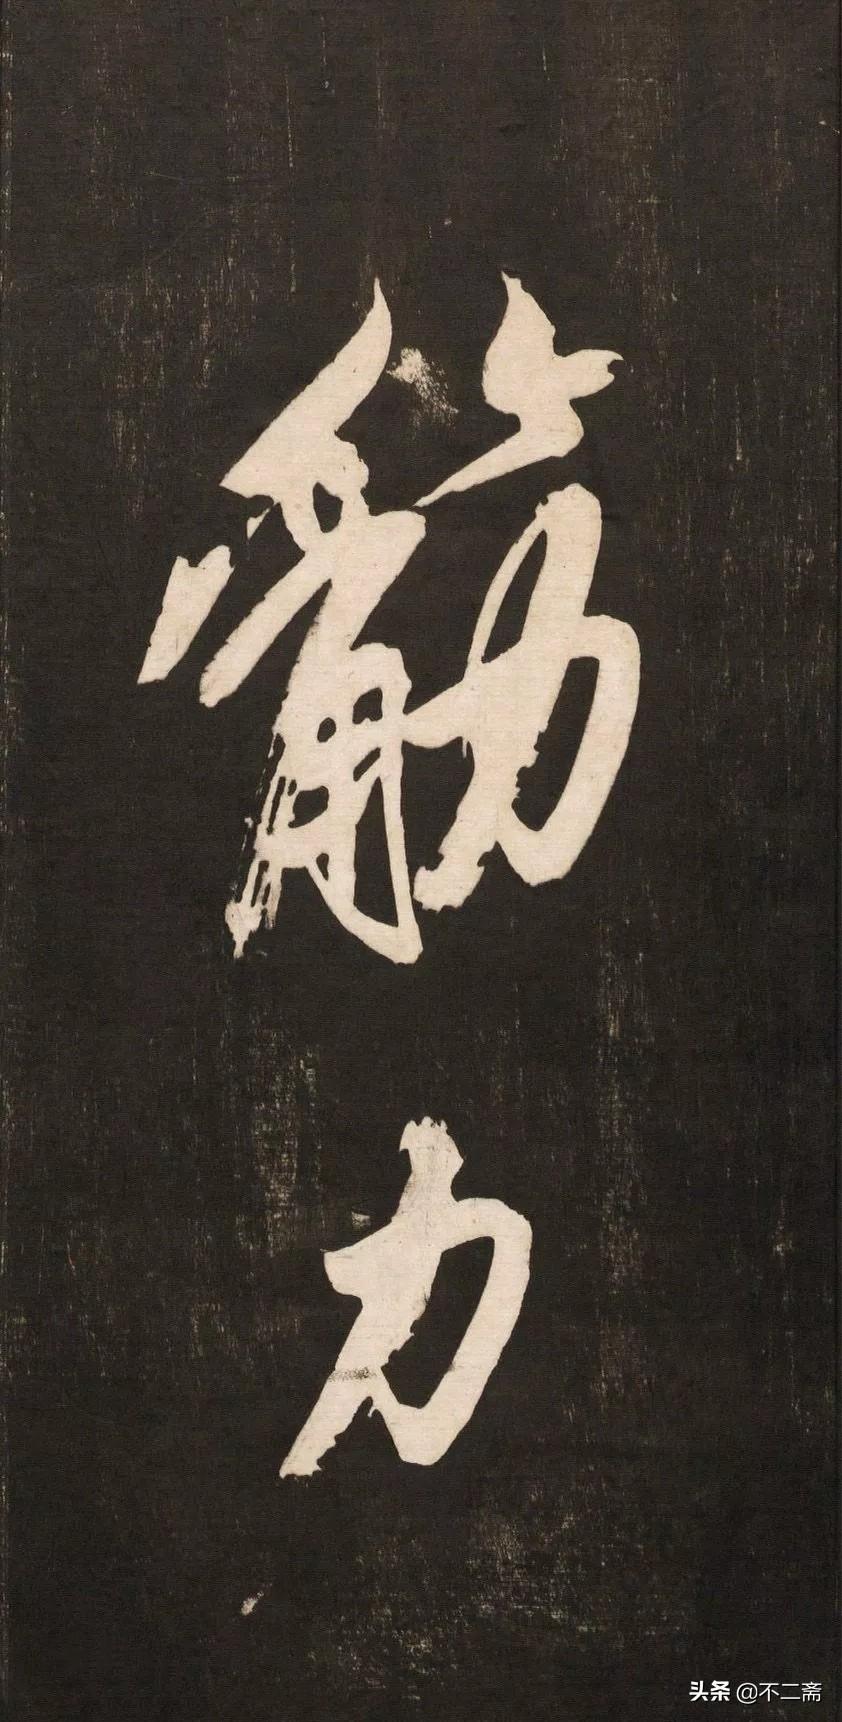 筋
力
头条 @不二斋